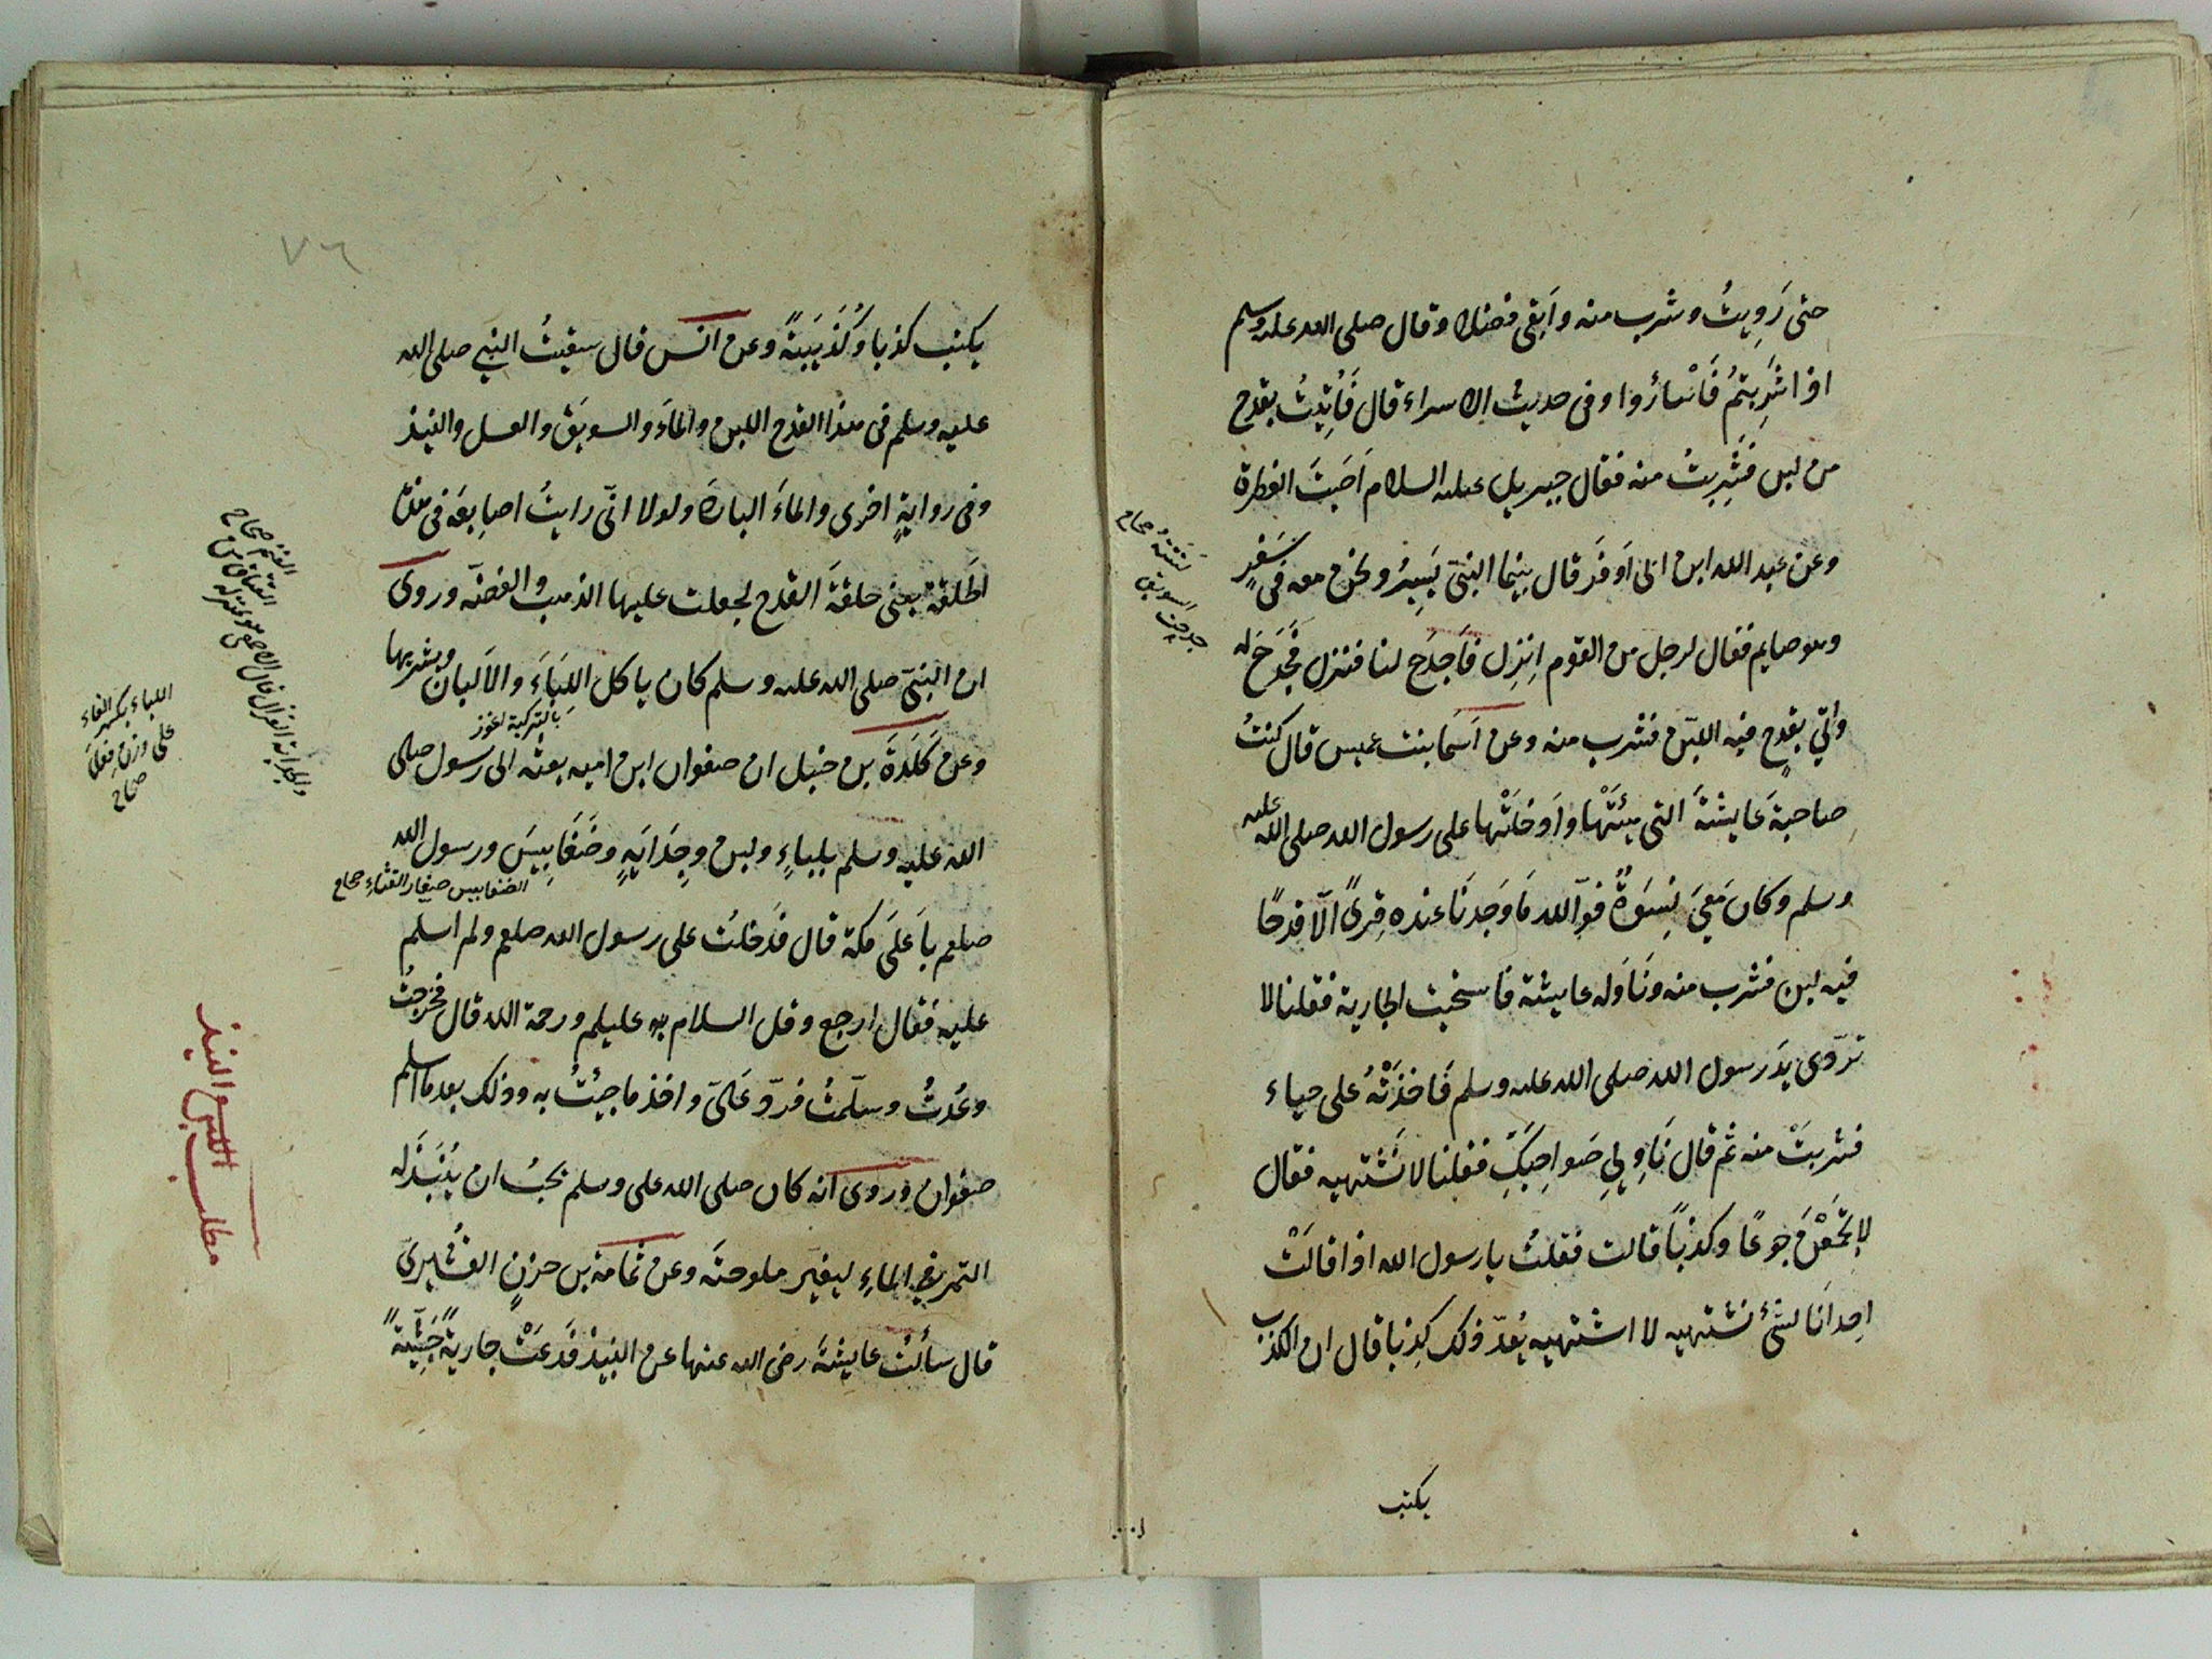 حتى رَوِيتُ وشرب منه وأبقى فضلا وقال صلى الله عليه وسلم
اذا شَرِبتمُ فَاسْأرُوا وفى حديث الاسراء قال فَاُتِيتُ بقدح
من لبن فشَرِبتُ منه فقال جبريل عليه السلام اَصَبتَ الفطرة
وعن عبد الله ابن ابى اَوفَى قال بينما النبىّ يَسِيرُ ونحن معه فى سَفْرٍ
وهو صايم فقال لرجل من القوم اِنزِل فاَجدَح لنا فنزل فَجَدَحَ له
واُتي بقدحٍ فيه اللبن فشرب منه وعن اَسمَا بنت عميس قال كنتُ
صاحبةَ عَايشةَ التى هيئَتْها واَدخلَتْها على رسول الله صلى الله عليه
وسلم وكان مَعِىَ نِسوَةٌ فوالله مَا وَجَدنَا عنده قِرىً الّا قدحًا
فيه لبن فشرب منه ونَاوَله عايشة فاستحيت الجارية فقلنا لا
تردّى يدَ رسول الله صلى الله عليه وسلم فَاخذَتْهُ على حياء
فشربَتْ منه ثم قال نَاوِلِى صَواحِبَكِ فقلنا لا نَشْتهيه فقال
لا تجمَعْنَ جوعًا وكذبًا قالت فقلتُ يا رسول الله اذا قالَتْ
احدانَا لشئ نشتهيه لا اشتهيه يُعدّ ذلك كِذبا قال ان الكذب
يكتب
لتَتَّهُ صحاح
جدحت السويق
٧٦
يكتب كذبا وكُذَيبَةً وعن انس قال سقيتُ النبى صلى الله
عليه وسلم فى هذا القدح اللبن والماءَ والسويَق والعسل والنبيذ
وفى روايةٍ اخرى والماءَ الباردَ ولولا انّى رايتُ اصابِعَه فى هذه
الحَلقة يعنى حلقةَ القدح لجعلت عليها الذهب والفضّه وروى
ان النبىّ صلى الله عليه وسلم كان ياكل اللِبَاءَ والاَلبان ويشربها
بالتركية اغوز
وعن كَلَدَةَ بن حنبل ان صفوان ابن اميه بعثه الى رسول صلى
الله عليه وسلم بلباءٍ ولبن وجِدَايَةٍ وضَغَابِيسَ ورسول الله
الضغابيس صغار القثاء صحاح
صلعم باَعلَى مكة قال فدَخلتُ على رسول الله صلعم ولم اُسلم
عليه فقال ارجع وقل السلام عليكم ورحمة الله قال فخرجتُ
وعُدتُ وسلّمتُ فردّ عَلىّ واخذ ما جيئتُ به وذلك بعد ما اسلم
صفوان وروى انه كان صلى الله على وسلم يحبُ ان يُنبَذَ له
التمر فى الماءِ ليغيّر ملوحتَه وعن ثمامة بن حزنٍ القُشيرىّ
قال سألتُ عايشةَ رضى الله عنها عن النبيذ فدَعَتْ جاريةً حَبَشِيّةً
اللباء بكسر الفاء
على وزن فِعَل
صحاح
والجداية الغزال قال الاصمعى هو بمنزلة
العناق من
الغنم صحاح
مطلب اللبن والنبيذ